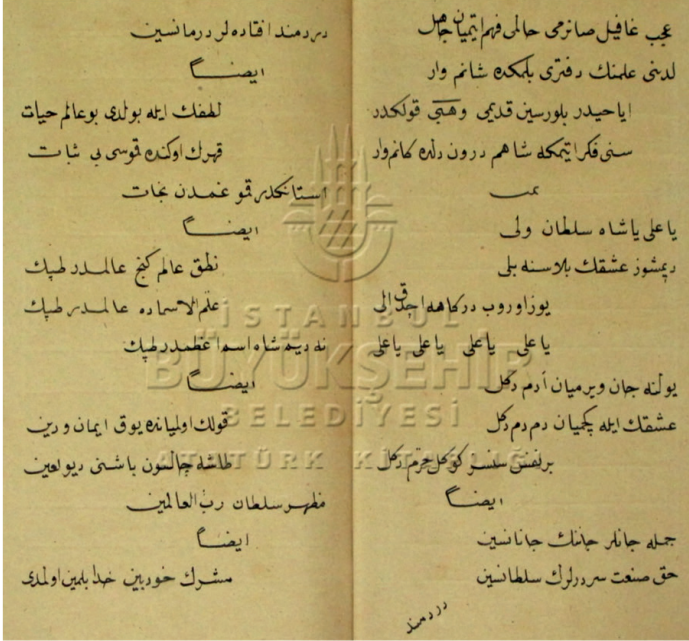 عجب غافیل صانرمی حالمی فهم ایتمیان جاهل
لدنی علمنك دفتری بلمكده شانم وار
ایا حیدر بلورسین قدیمی وهبی قولكدر
سنی فكر ایتمكه شاهم درون دلده كانم وار
یا علی یا شاه سلطان ولی
دپمشوز عشقك بلاسنه بلی
یوز اوروب دركاهه اچدق الی
یا علی یا علی یا علی یا علی
یولنه جان ویرمیان آدم دكل
عشقك ایله چكمیان دم دم دكل
برنفس سنسز كوكل خرم دكل
ایضاً
جمله جانلر جاننك جانانسین
حق صنعت سردرلرك سلطانسین
دردمند
دردمند افتاده لر درمانسین
ایضاً
لطفك ایله بولدی بو عالم حیات
قهرك اوكنده قموسی بی ثبات
استانكدر قمو غمدن نجات
ایضاً
نطق عالم كنج عالمدر طپك
علم الاسماده عالمدر طپك
نه دیم شاه اسم اعظمدر طپك
ایضاً
قولك اولمیانده یوق ایمان و دین
طاشه چالسون باشنی دیو لعین
مظهر سلطان رب العالمین
ایضاً
مشرك خودبین خدا بلمین اولمدی
İSTANBUL
BÜYÜKŞEHİR
BELEDİYESİ
ATATÜRK KİTAPLIĞI